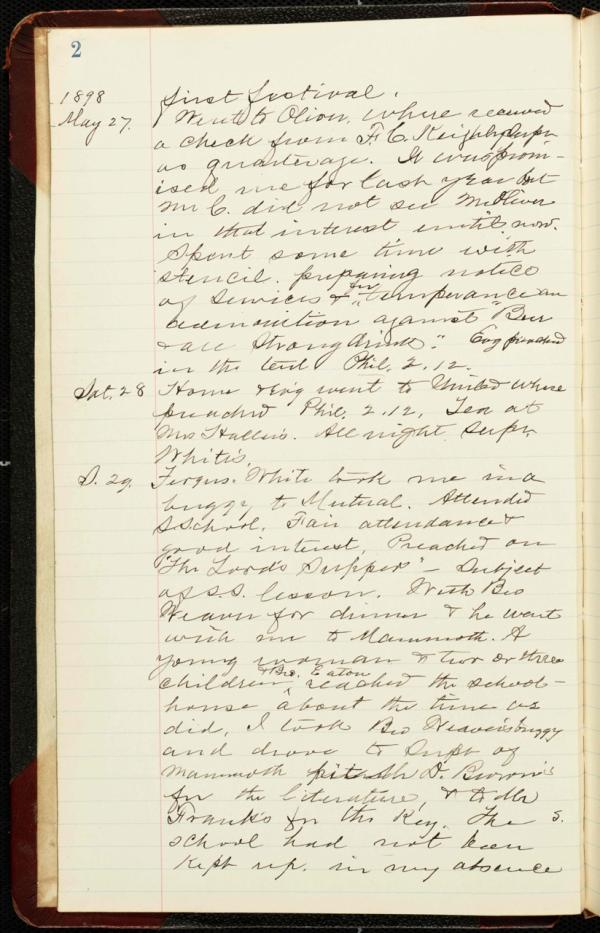 2
1898
first festival.
May 27.
Went to Oliver, where received
a check from F. C. Keighly Supt
as quarterage. It was prom-
ised me for last year but
Mr C. did not see Mr Oliver
in that interest until now.
Spent some time with
stencil, preparing notice
of services & for "temperance an
admonition against "Beer
& all Strong drink". Evg preached
in the tent Phil. 2.12.
Sat. 28 Home & Ev'g went to United where
preached Phil. 2.12. Tea at
Mrs Hallis's. All night Supt.
White's.
S. 29. Fergus. White took me in a
buggy to Mutual. Attended
S School. Fair attendance &
good interest. Preached on
"The Lord's Supper" – Subject
of S.S. lesson. With Bro
Weaver for dinner & he went
with me to Mammoth. A
young woman & two or three
& Bro. Eaton
children ‸ reached the school-
house about the time we
did, I took Bro Weaver's buggy
and drove to Supt of
Mammoth D. Brown's
for the literature, & to Mr
Frank's for the Key. The S.
school had not been
Kept up. in my absence